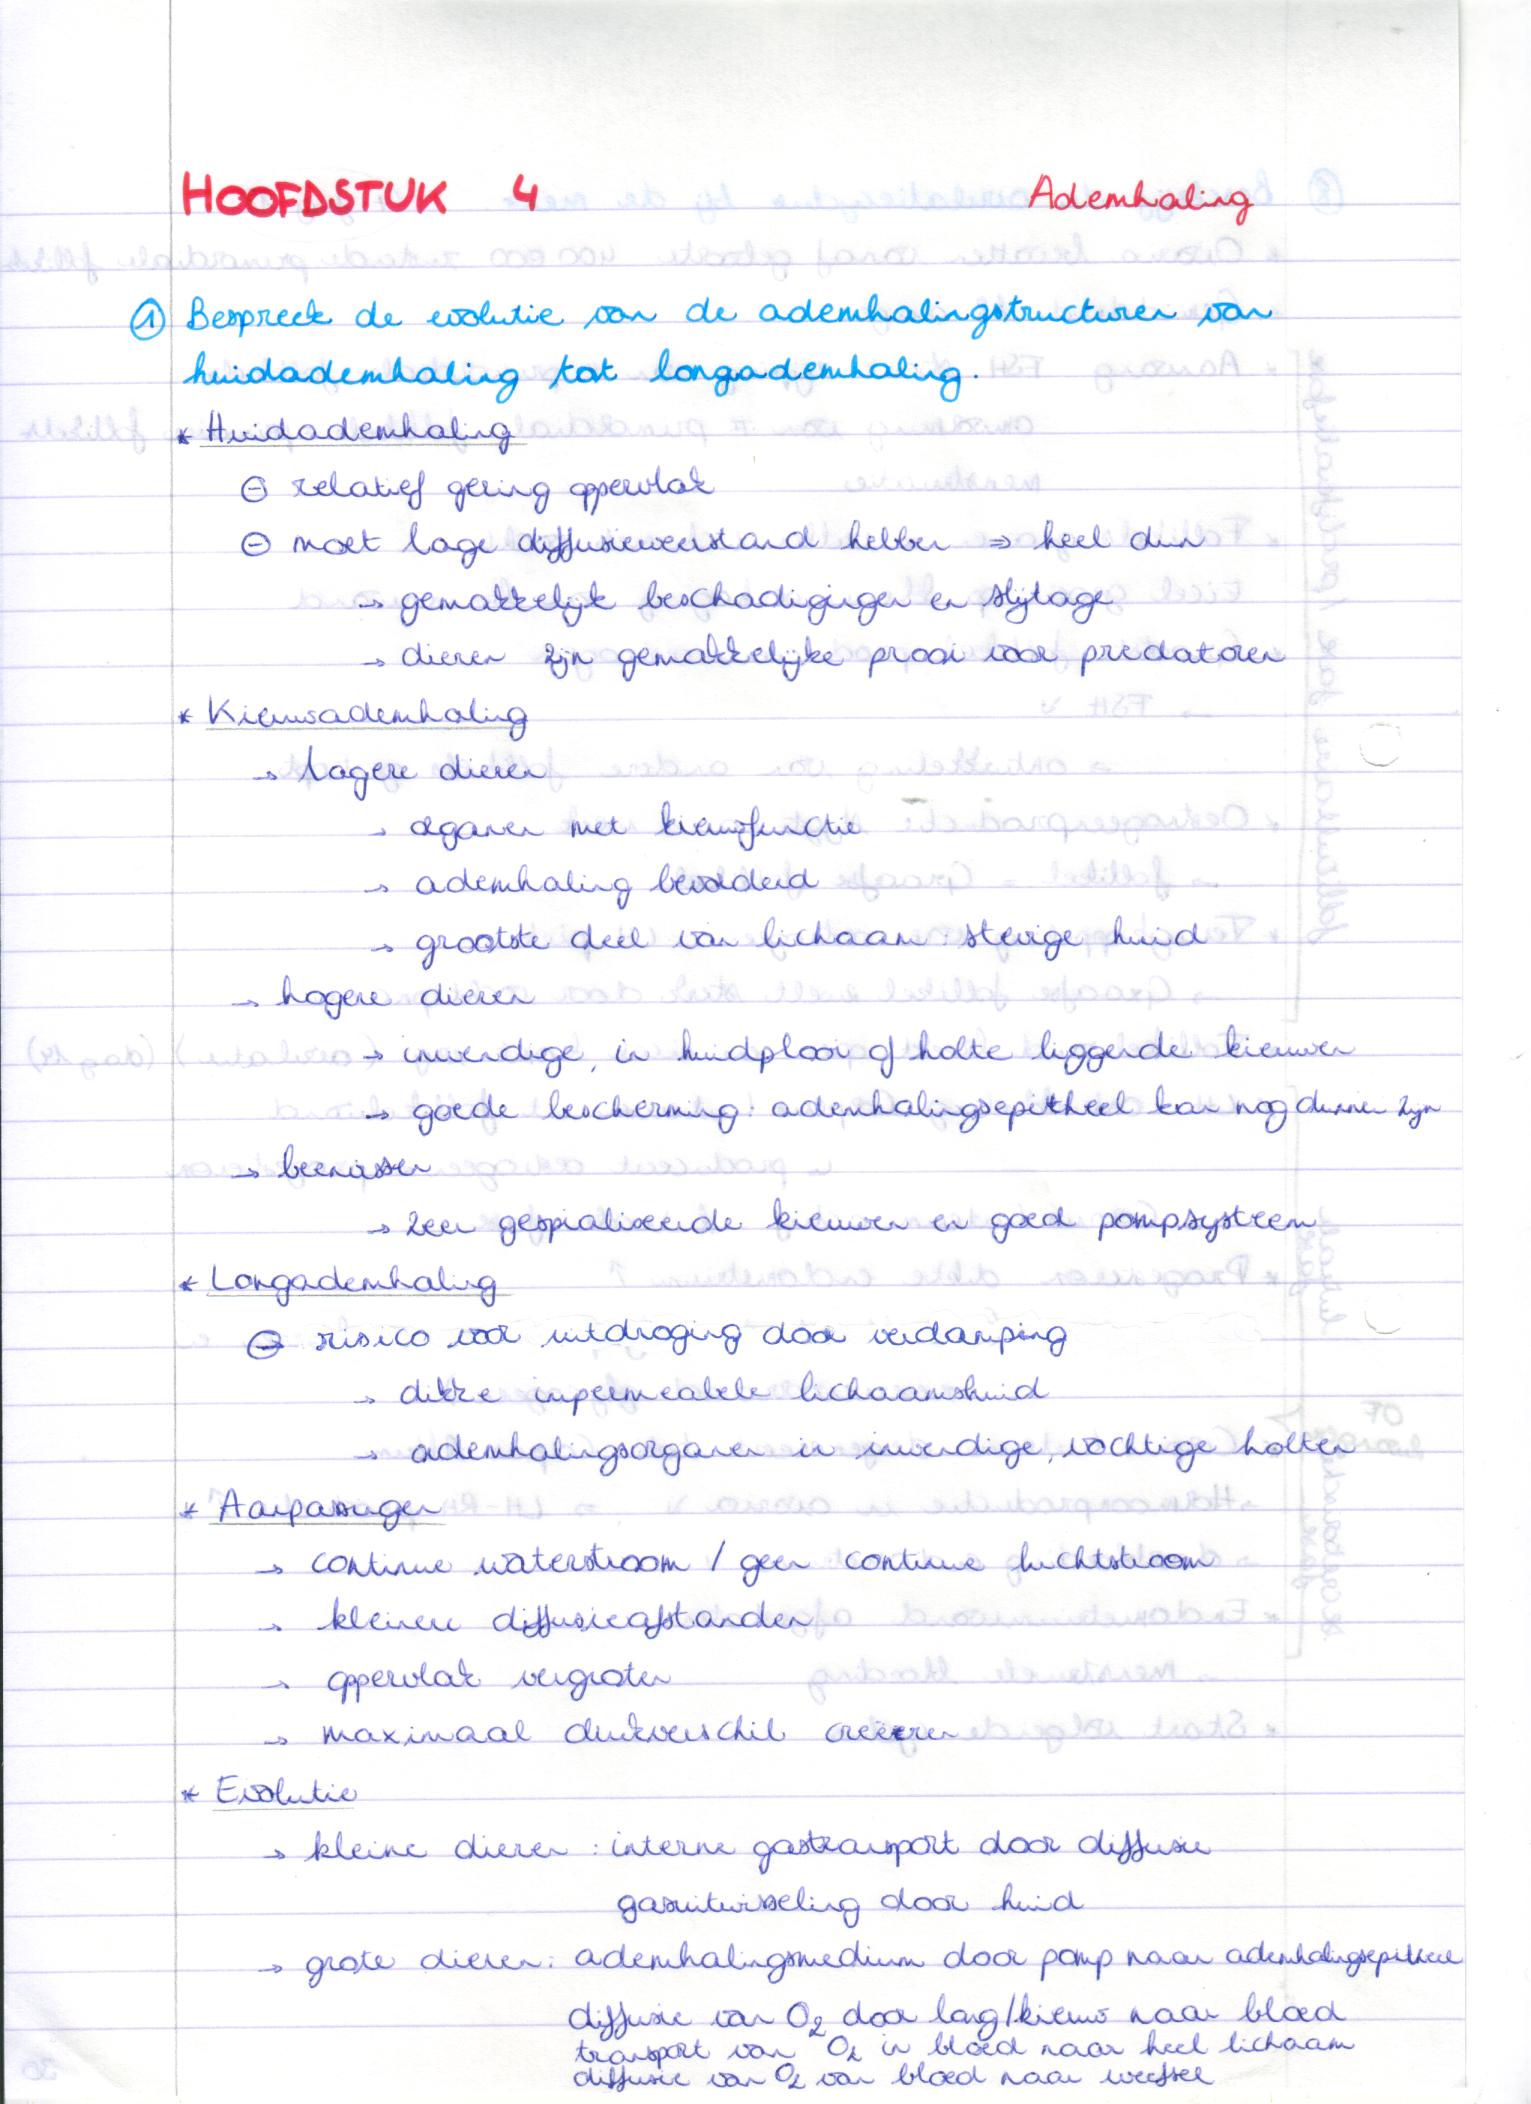 HOOFDSTUK 4 Ademhaling
① Bespreek de evolutie van de ademhalingstructuren van
huidademhaling tot longademhaling.
* Huidademhaling
⊖ relatief gering oppervlak
⊖ moet lage diffusieweerstand hebben ⇒ heel dun
→ gemakkelijk beschadigingen en slijtage
→ dieren zijn gemakkelijke prooi voor predatoren
* Kieuwademhaling
→ lagere dieren
→ organen met kieuwfunctie
→ ademhaling bevorderd
→ grootste deel van lichaam : stevige huid
→ hogere dieren
→ inwendige, in huidplooi of holte liggende kieuwen
→ goede bescherming : ademhalingsepitheel kan nog dunner zijn
→ beenvissen
→ zeer gespialiseerde kieuwen en goed pompsysteem
* Longademhaling
⊖ risico voor uitdroging door verdamping
→ dikke impermeabele lichaamshuid
→ ademhalingsorganen in inwendige, vochtige holten
* Aanpassingen
→ continue waterstroom / geen continue luchtstroom
→ kleinere diffusieafstanden
→ oppervlak vergroten
→ maximaal drukverschil creëeren
* Evolutie
→ kleine dieren : interne gastransport door diffusie
gasuitwisseling door huid
→ grote dieren : ademhalingsmedium door pomp naar ademhalingsepitheel
diffusie van O₂ door long/kieuw naar bloed
transport van O₂ in bloed naar heel lichaam
diffusie van O₂ van bloed naar weefsel